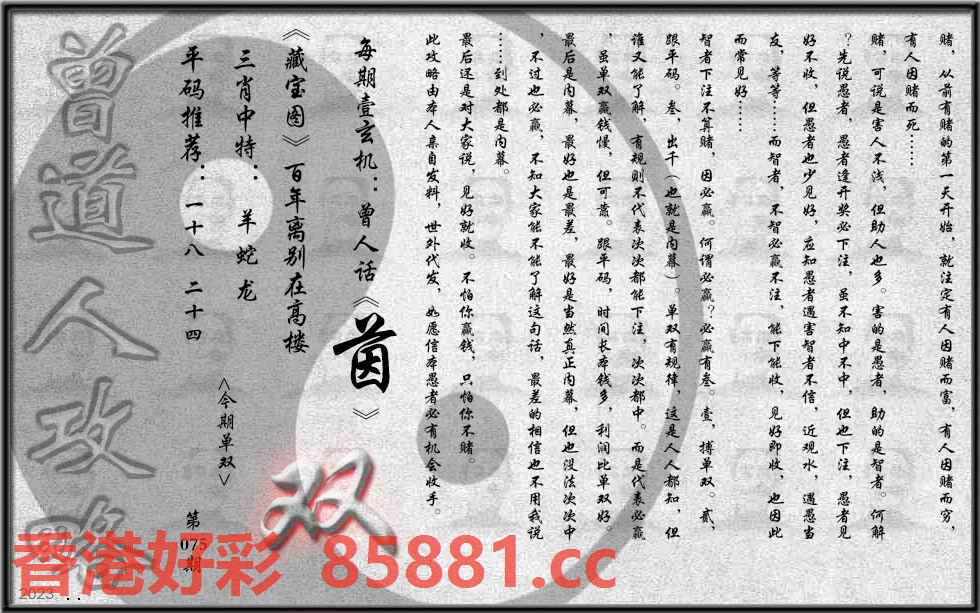 赌，从前有赌的第一天开始，就注定有人因赌而富，有人因赌而穷，
有人因赌而死……
赌，可说是害人不浅，但助人也多。害的是愚者，助的是智者。何解
？先说愚者，愚者逢开奖必下注，虽不知中不中，但也下注，愚者见
好不收，但愚者也少见好，应知愚者遇害智者不信，近观水，遇愚当
友，等等……而智者，不智必赢不注，能下能收，见好即收，也因此
而常见好……
智者下注不算赌，因必赢。何谓必赢？必赢有叁。壹，搏单双。贰，
跟平码。叁，出千（也就是内幕）。单双有规律，这是人人都知，但
谁又能了解，有规则不代表次次都能下注，次次都中。而是代表必赢
，虽单双赢钱慢，但可蓄。跟平码，时间长本钱多，利润比单双好。
最后是内幕，最好也是最差，最好是当然真正内幕，但也没法次次中
，不过也必赢，不知大家能不能了解这句话，最差的相信也不用我说
……到处都是内幕。
最后还是对大家说，见好就收。不怕你赢钱，只怕你不赌。
此攻略由本人亲自发料，世外代发，如愿信本愚者必有机会收手。
每期壹玄机：曾人话《茵》
《藏宝图》百年离别在高楼
三肖中特：羊蛇龙
平码推荐：一十八 二十四
<今期单双>
双
第075期
曾道人攻略
香港好彩 85881.cc
2023